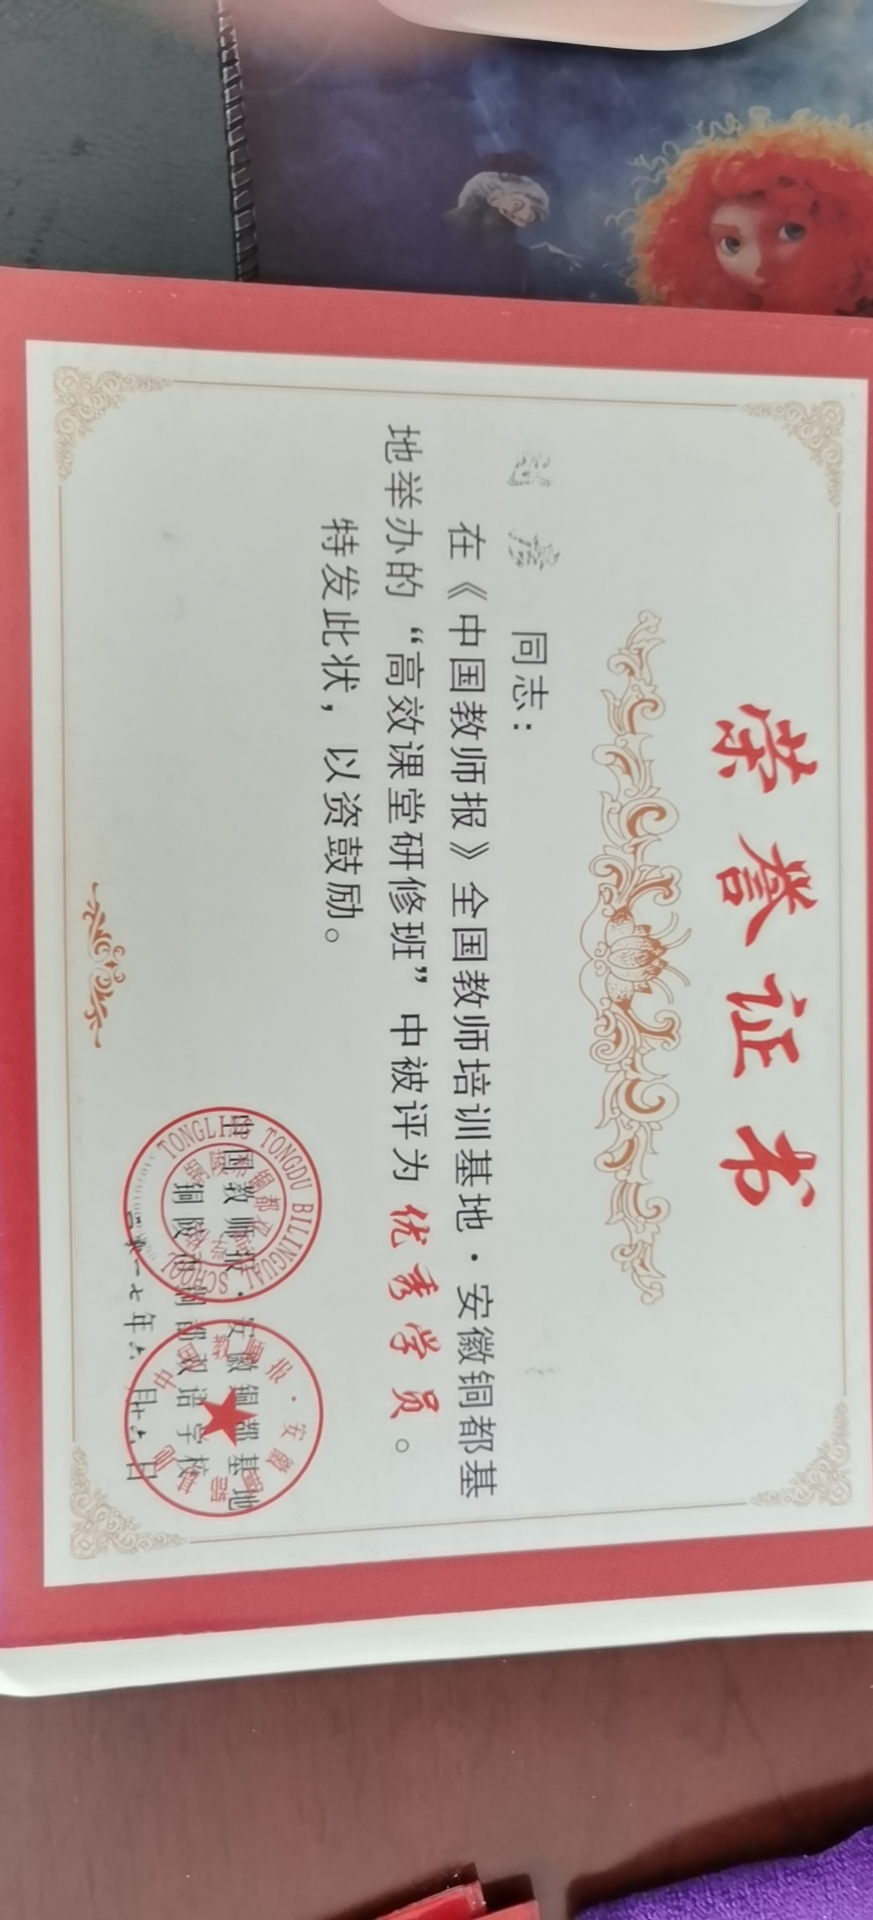 荣誉证书
同志：
在《中国教师报》全国教师培训基地·安徽铜都基
地举办的“高效课堂研修班”中被评为优秀学员。
特发此状，以资鼓励。
中国教师报·安徽铜都基地
铜陵市铜都双语学校
一七年六月十六日
TONGLING TONGDU BILINGUAL SCHOOL
中国教师报·安徽